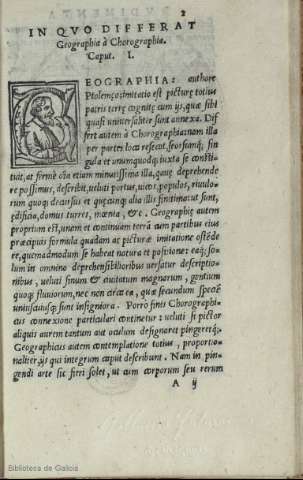 2
IN QVO DIFFERAT
Geographia à Chorographia.
Caput. I.
GEOGRAPHIA: authore
Ptolemęo imitatio est picturę totius
patris terrę cognitę cum ijs, quæ sibi
quasi uniuersaliter sunt annexa. Dif
fert autem à Chorographia: nam illa
per partes loca resecat, seorsumq́; sin
gula et unumquodq; iuxta se consti
tuit, ac fermè oīa etiam minutissima illa, quæ deprehende
re possimus, describit, ueluti portus, uicos, populos, riuulo
rum quoq; decursus et quęcunq; alia illis finitima ut sunt,
ędificia, domus turres, mœnia, & c. Geographię autem
proprium est, unam et continuam terrā cum partibus eius
præcipuis formula quadam ac picturæ imitatione ostēde
re, quemadmodum se habeat natura et positione: eaq́; so-
lum in omnino deprehensibilioribus uersatur descriptio-
nibus, ueluti sinuū & ciuitatum magnarum, gentium
quoq; fluuiorum, nec non circa ea, quæ secundum speciē
uniuscuiusq; sunt insigniora. Porro finis Chorographi-
cus connexione particulari continetur: ueluti si pictor
aliquis aurem tantum aut oculum designaret pingeretq́;
Geographicus autem contemplatione totius, proportio-
naliter, ijs qui integrum caput describunt. Nam in pin-
gendi arte sic fieri solet, ut cum corporum seu rerum
A ij
Biblioteca de Galicia